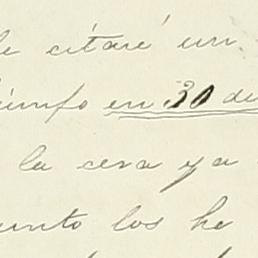 le citaré un
iunfo en 30 de
la cera ya
unto los he